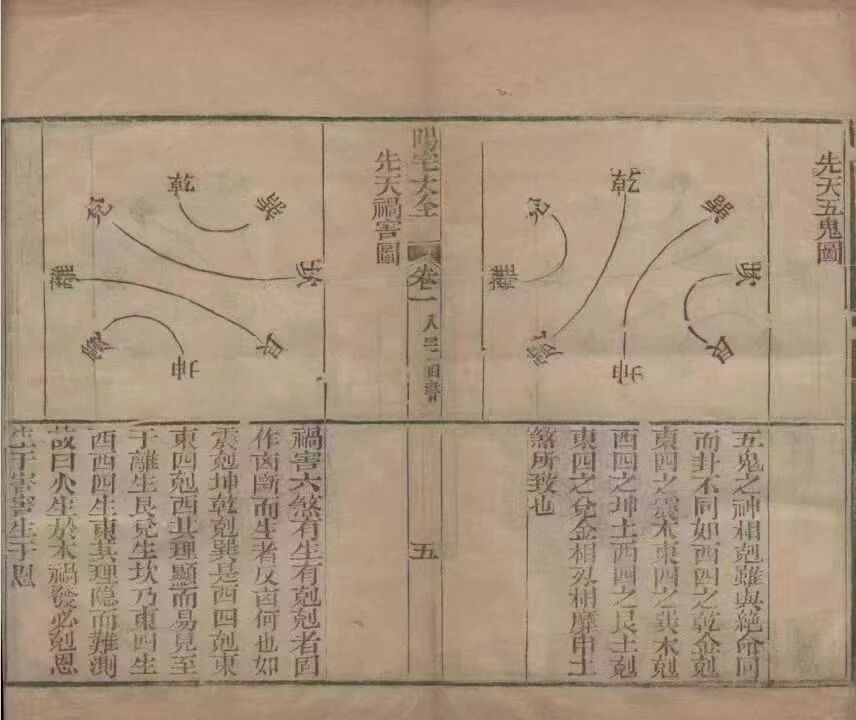 先天五鬼圖
乾
巽
坎
艮
坤
震
離
兌
五鬼之神相剋雖與絶命同
而卦不同如西四之乾金剋
東四之震木東四之巽木剋
西四之坤土西四之艮土剋
東四之兌金相刃相靡申土
煞所致也
陽宅大全
卷一
八宅四書
五
先天禍害圖
乾
巽
坎
艮
坤
震
離
兌
禍害六煞有生有剋剋者固
作凶斷而生者反凶何也如
震剋坤乾剋巽是西四剋東
東四剋西其理顯而易見至
于離生艮兌生坎乃東四生
西西四生東其理隱而難測
故曰火生於木禍發必剋恩
生于害害生于恩